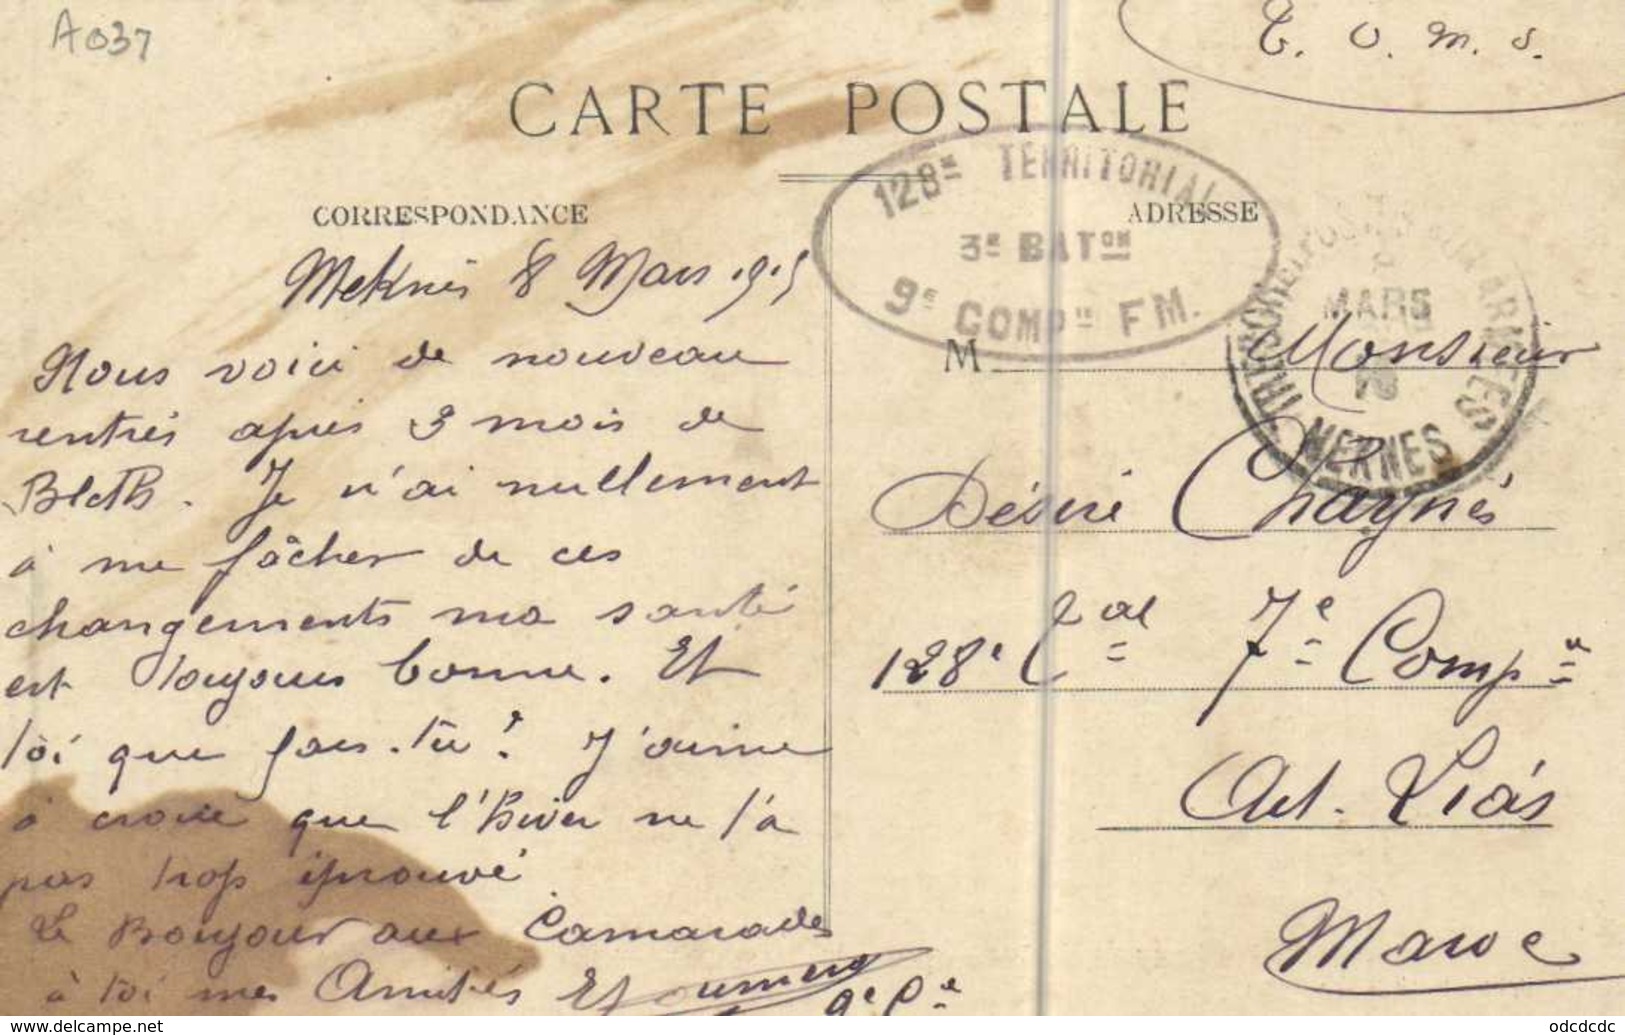 A037
T. O. M. S.
CARTE POSTALE
128e TERRITORIAL
3e BATon
9e COMPie FM.
CORRESPONDANCE
ADRESSE
Meknès 8 Mars 1915
MARS
MEKNES
Nous voici de nouveau
rentrés après 3 mois de
Bleth. Je n'ai nullement
à me fâcher de ces
changements ma santé
est toujours bonne. Et
toi que fais-tu? J'aime
à croire que l'hiver ne t'a
pas trop éprouvé
Le Bonjour aux Camarades
à toi mes Amitiés
9e Cie
M Monsieur
Désiré Chaynès
128e Tal 7e Compie
Maroc
delcampe.net
odcdcdc